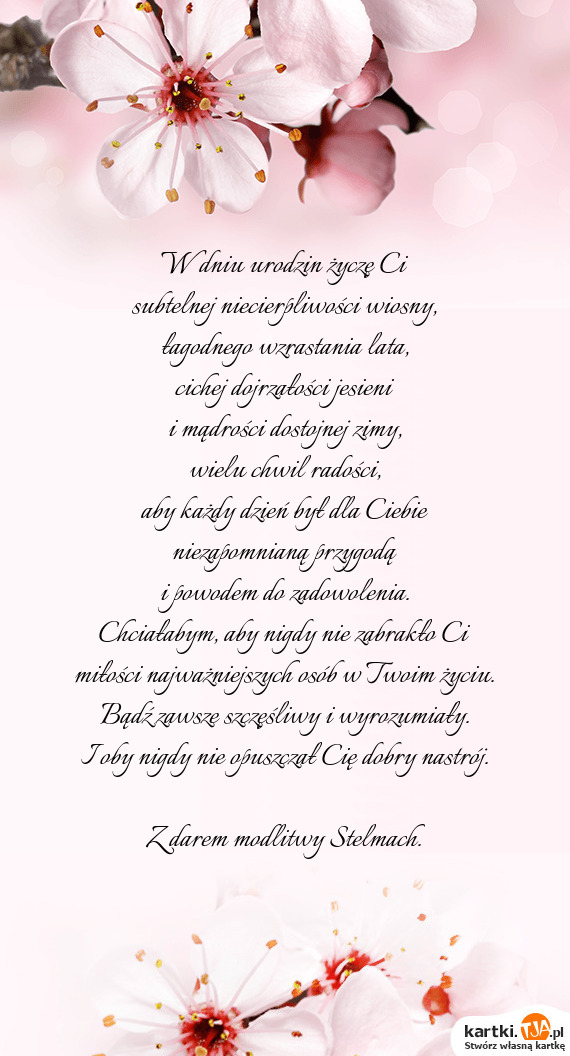 W dniu urodzin życzę Ci
subtelnej niecierpliwości wiosny,
łagodnego wzrastania lata,
cichej dojrzałości jesieni
i mądrości dostojnej zimy,
wielu chwil radości,
aby każdy dzień był dla Ciebie
niezapomnianą przygodą
i powodem do zadowolenia.
Chciałabym, aby nigdy nie zabrakło Ci
miłości najważniejszych osób w Twoim życiu.
Bądź zawsze szczęśliwy i wyrozumiały.
I oby nigdy nie opuszczał Cię dobry nastrój.
Z darem modlitwy Stelmach.
kartki.TJA.pl
Stwórz własną kartkę